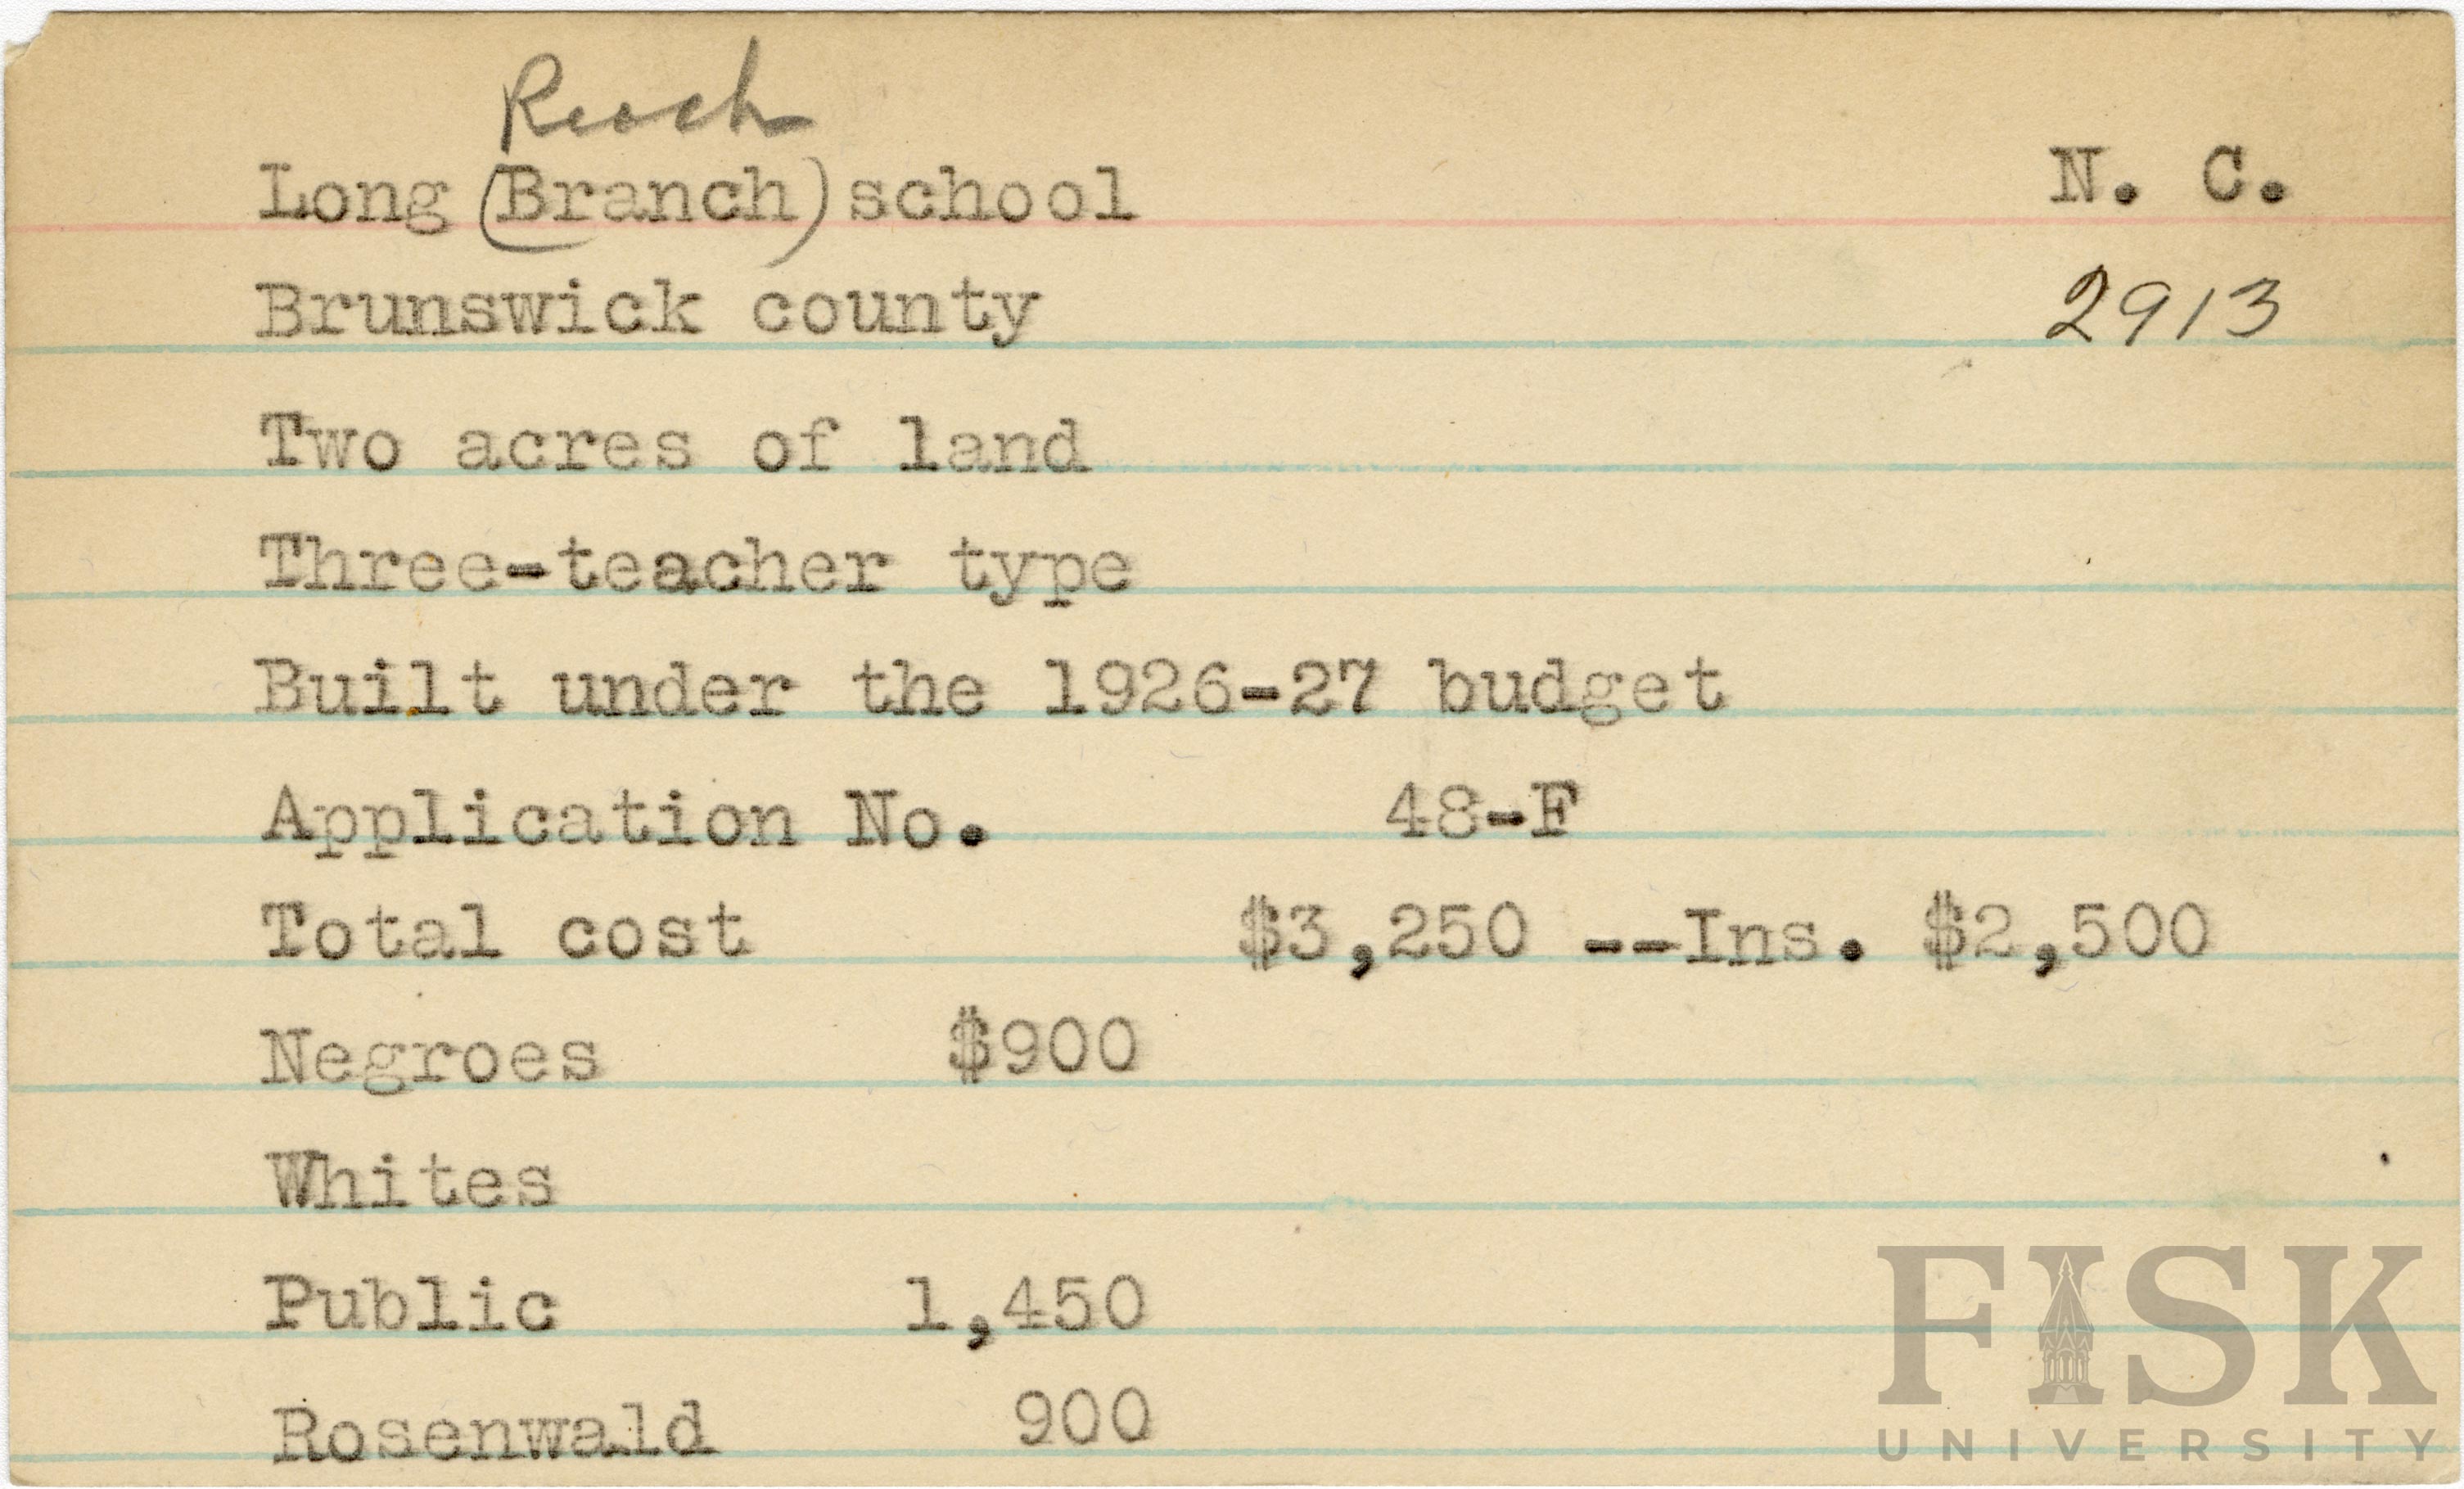 Reach
Long (Branch) school N. C.
Brunswick county 2913
Two acres of land
Three-teacher type
Built under the 1926-27 budget
Application No. 48-F
Total cost $3,250 --Ins. $2,500
Negroes $900
Whites
Public 1,450
Rosenwald 900
FISK
UNIVERSITY